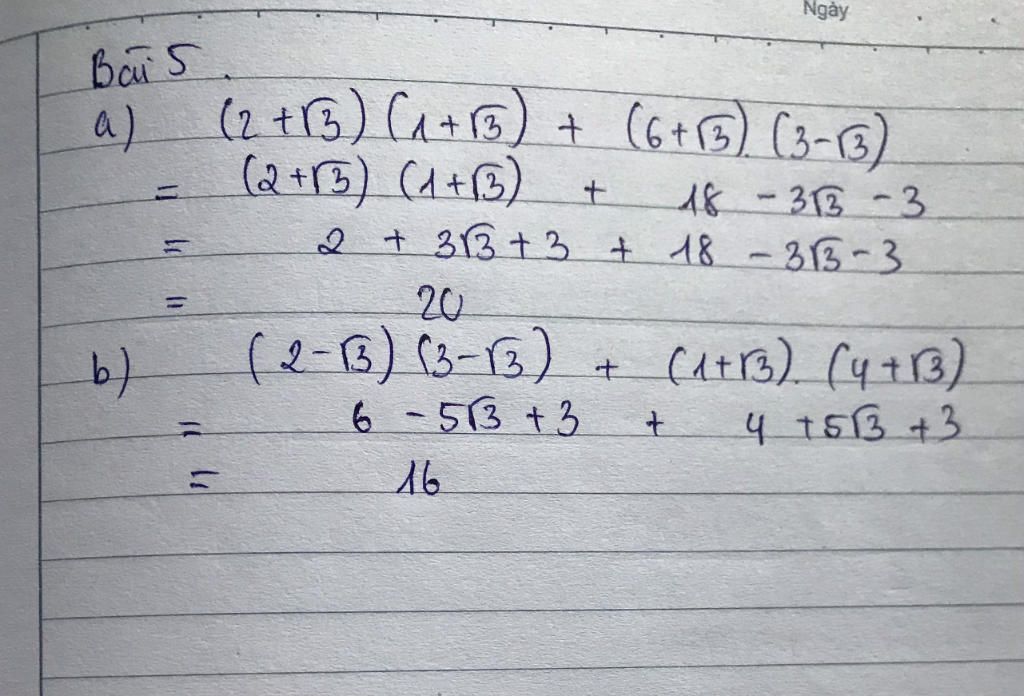 Ngày
Bài 5.
a) (2+√3)(1+√3) + (6+√3).(3-√3)
= (2+√3) (1+√3) + 18 - 3√3 - 3
= 2 + 3√3 + 3 + 18 - 3√3 - 3
= 20
b) (2-√3)(3-√3) + (1+√3).(4+√3)
= 6 - 5√3 + 3 + 4 + 5√3 + 3
= 16